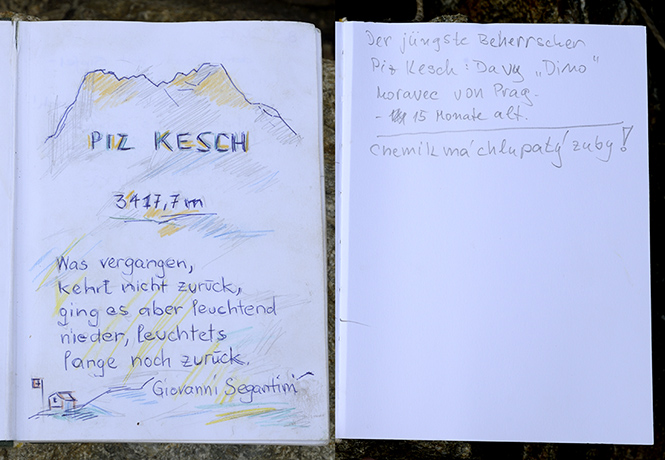 PIZ KESCH
3417,7 m
Was vergangen,
kehrt nicht zurück,
ging es aber leuchtend
nieder, leuchtets
lange noch zurück.
Giovanni Segantini
Der jüngste Beherrscher
Piz Kesch: Davy „Dino"
Moravec von Prag.
- 15 Monate alt.
chemik má chlupatý zuby!